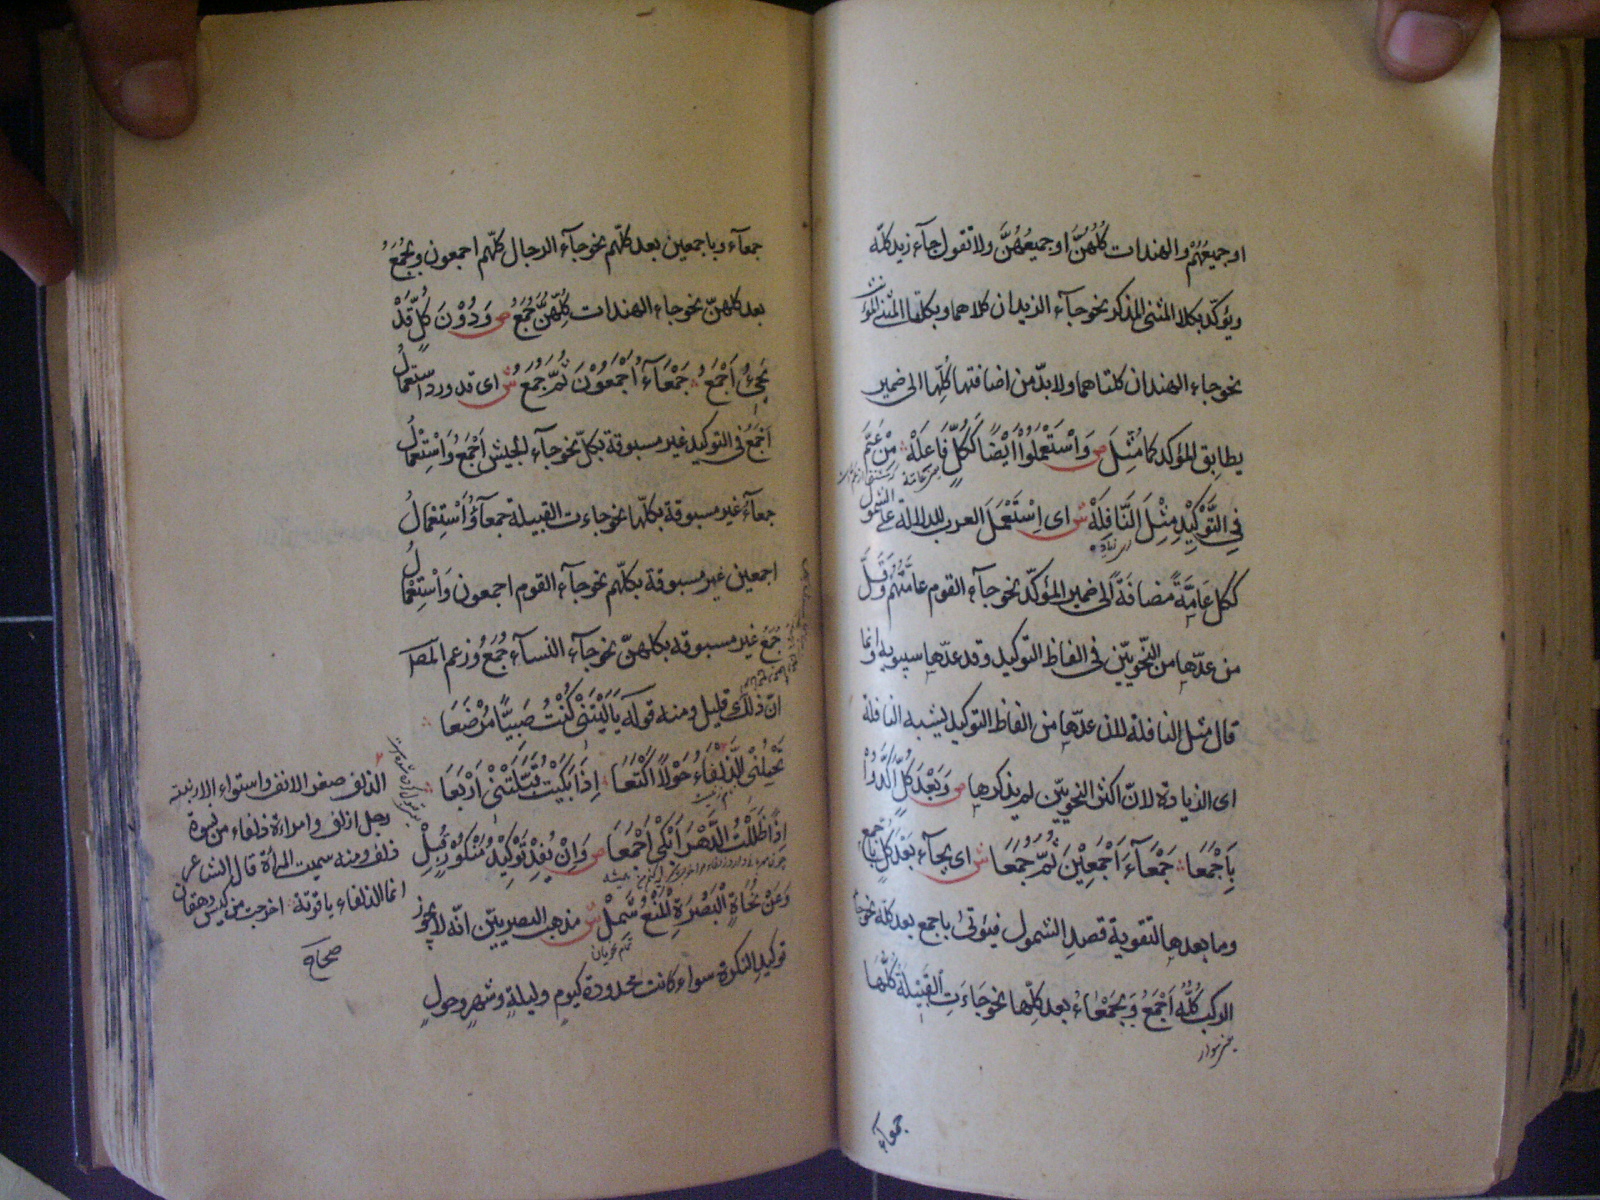 او جميعُهُمْ والهندات كُلُّهُنَّ او جميعُهُنَّ ولا تقول جآء زيد كلّه
ويؤكّد بكلا المثنى المذكر نحو جآء الزيدان كلاهما وبكلتا المثنى المؤنث
نحو جاء الهندان كلتاهما ولا بدّ من اضافتها كُلِّها الى ضمير
يطابِق المؤكد كما مُثِّلَ ص وَاسْتَعْمَلُوا اَيْضًا كَكُلٍّ فَاعِلَهْ مِنْ عَمَّ
فِي التَّوْكِيْدِ مِثْلَ النَّافِلَهْ ش اى اِسْتَعْمَلَ العرب للدلالة على الشمول
ككل عَامَّةً مضافَةً الى ضمير المؤكّد نحو جآء القوم عامَّتُهُمْ وَقَلَّ
من عدّها من النّحويّين فى الفاظ التوكيد وقد عدّها سيبويه وانما
قال مثل النافلة لان عدّها من الفاظ التوكيد يشبه النافلة
اى الزيادة لانّ اكثر النحويّين لم يذكرها ص وَبَعْدَ كُلٍّ اَكَّدُوْا
بِاَجْمَعَا جَمْعَآءَ اَجْمَعِيْنَ ثُمَّ جُمَعَا ش اى يجآء بَعْدَ كلٍّ باجمع
وما بعدها لتقوية قصدِ الشمول فيُؤتى باجمع بعد كلّه نحو جاء
الركب كُلُّهُ اَجْمَعُ وَبِجَمْعَاءُ بعد كلِّها نحو جَاءَتِ القَبِيْلَةُ كُلُّهَا
جمعآء
جمعآء وباجمعين بعد كلّهم نحو جآء الرجال كلّهم اجمعون وبِجُمَعُ
بعد كلهنّ نحو جاء الهندات كلّهنَّ جُمَعُ ص وَدُوْنَ كُلٍّ قَدْ
يَجِيْءُ اَجْمَعُ جَمْعَآءُ اَجْمَعُوْنَ ثُمَّ جُمَعُ ش اى قد ورد استعمالُ
اَجْمَعَ فى التوكيد غير مسبوقة بكلّ نحو جآء الجيش اَجْمَعُ وَاسْتِعْمَالُ
جمعآءَ غير مسبوقة بكلّها نحو جاءت القبيلة جمعآءُ وَاسْتِعْمَالُ
اجمعين غير مسبوقة بكلّهم نحو جآء القوم اجمعون وَاسْتِعْمَالُ
جُمَعُ غير مسبوقة بكلهنّ نحو جآء النسآء جُمَعُ وزعم المصـ
انّ ذلك قليل ومنه قوله يَا لَيْتَنِيْ كُنْتُ صَبِيًّا مُرْضَعَا
تَحْمِلُنِي الذَّلْفَاءُ حَوْلًا اَكْتَعَا اِذَا بَكَيْتُ قَبَّلَتْنِيْ اَرْبَعَا
اِذًا ظَلَلْتُ الدَّهْرَ اَبْكِيْ اَجْمَعَا ص وَاِنْ يُفِدْ تَوْكِيْدُ مَنْكُوْرٍ قُبِلْ
وَعَنْ نُحَاةِ الْبَصْرَةِ الْمَنْعُ شَمِلْ ش مذهب البصريّين انّه لا يجوز
توكيدِ النكرة سواء كانت محدودة كيوم وليلةٍ وشهرٍ وحولٍ
الذلف صغر الانف واستواء الارنبة
رجل اذلف وامراءة ذلفاء من نسوة
ذلف ومنه سميت المرأة قال الشاعر
انما الذلفاء ياقوتة اخرجت من كيس دهقان
صحاح